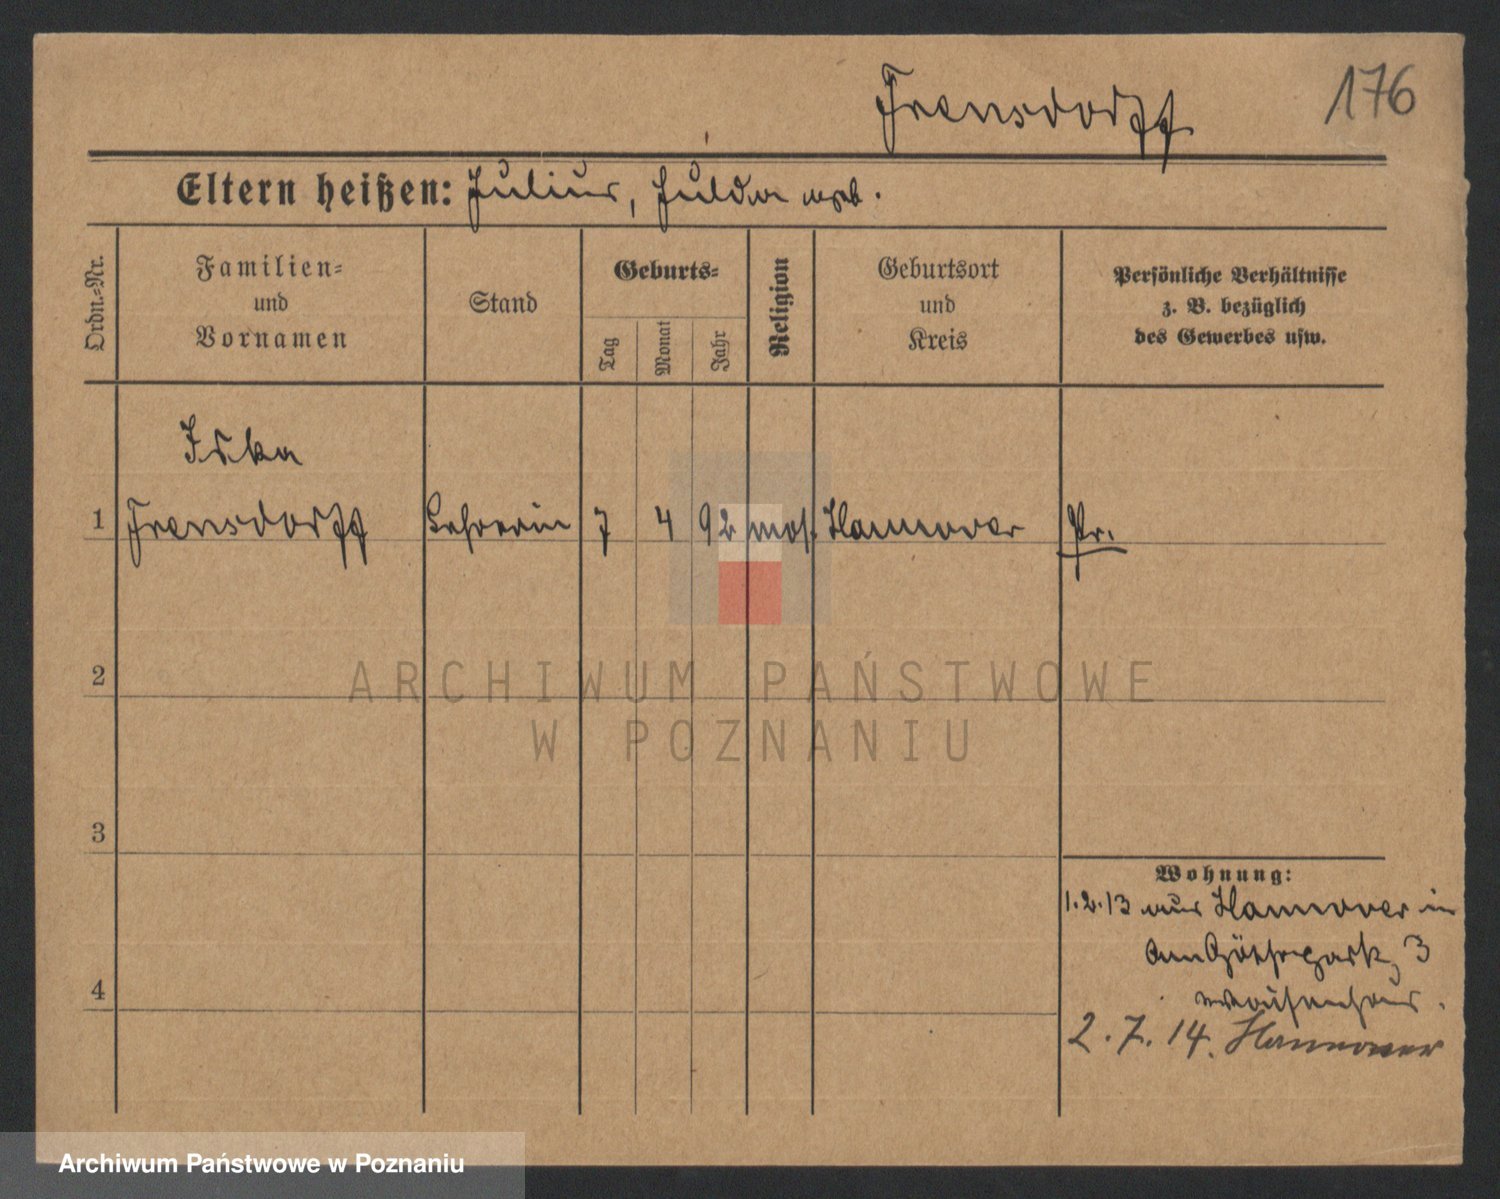 Frensdorff
176
Eltern heißen: Julius, Fulda geb.
Ordn.-Nr.
Familien-
und
Vornamen
Stand
Geburts-
Tag
Monat
Jahr
Religion
Geburtsort
und
Kreis
Persönliche Verhältnisse
z. B. bezüglich
des Gewerbes usw.
Iska
1 Frensdorff Lehrerin 7 4 92 mos. Hannover Pr.
2
3
4
Wohnung:
1.2.13 aus Hannover in
Am Göthepark 3
Waisenhaus.
2.7.14. Hannover
ARCHIWUM PAŃSTWOWE
W POZNANIU
Archiwum Państwowe w Poznaniu